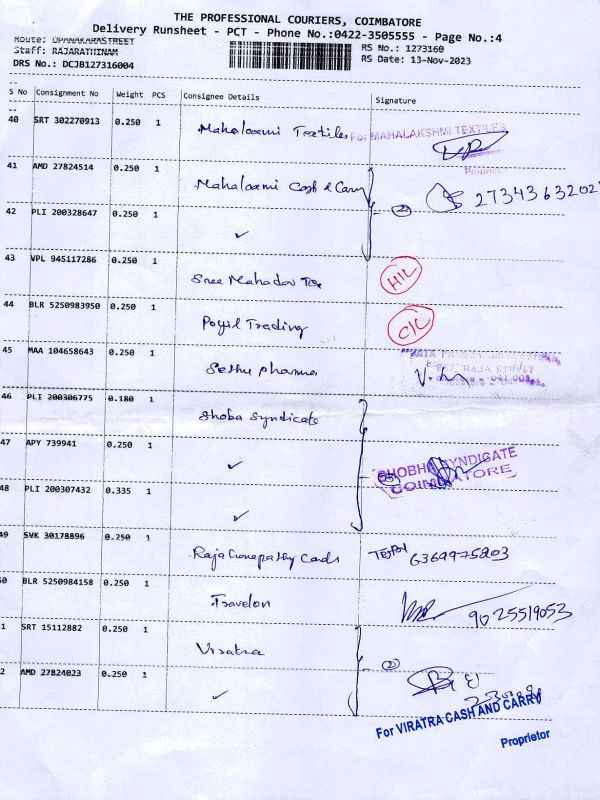 THE PROFESSIONAL COURIERS, COIMBATORE
Delivery Runsheet - PCT - Phone No.:0422-3505555 - Page No.:4
Route: OPANAKARASTREET
Staff: RAJARATHINAM
DRS No.: DCJB127316004
RS No.: 1273160
RS Date: 13-Nov-2023
S No Consignment No Weight PCS Consignee Details Signature
40 SRT 302270913 0.250 1 Mahalaxmi Textiles For MAHALAKSHMI TEXTILES
Propriet
41 AMD 27824514 0.250 1 Mahalaxmi Cash & Carry
42 PLI 200328647 0.250 1 ✓
43 VPL 945117286 0.250 1 Sree Mahadev Tex H/L
44 BLR 5250983950 0.250 1 Trading C/L
45 MAA 104658643 0.250 1 Sethu pharma RAJA STREET
46 PLI 200306775 0.180 1 Shoba Syndicate
47 APY 739941 0.250 1 ✓ SHOBHA SYNDICATE
COIMBATORE
48 PLI 200307432 0.335 1 ✓
49 SVK 30178896 0.250 1 Raja Ganapathy Cards 6369975803
0 BLR 5250984158 0.250 1 Travelon 9025519053
1 SRT 15112882 0.250 1 Viratra
2 AMD 27824023 0.250 1 ✓
For VIRATRA CASH AND CARRY
Proprietor